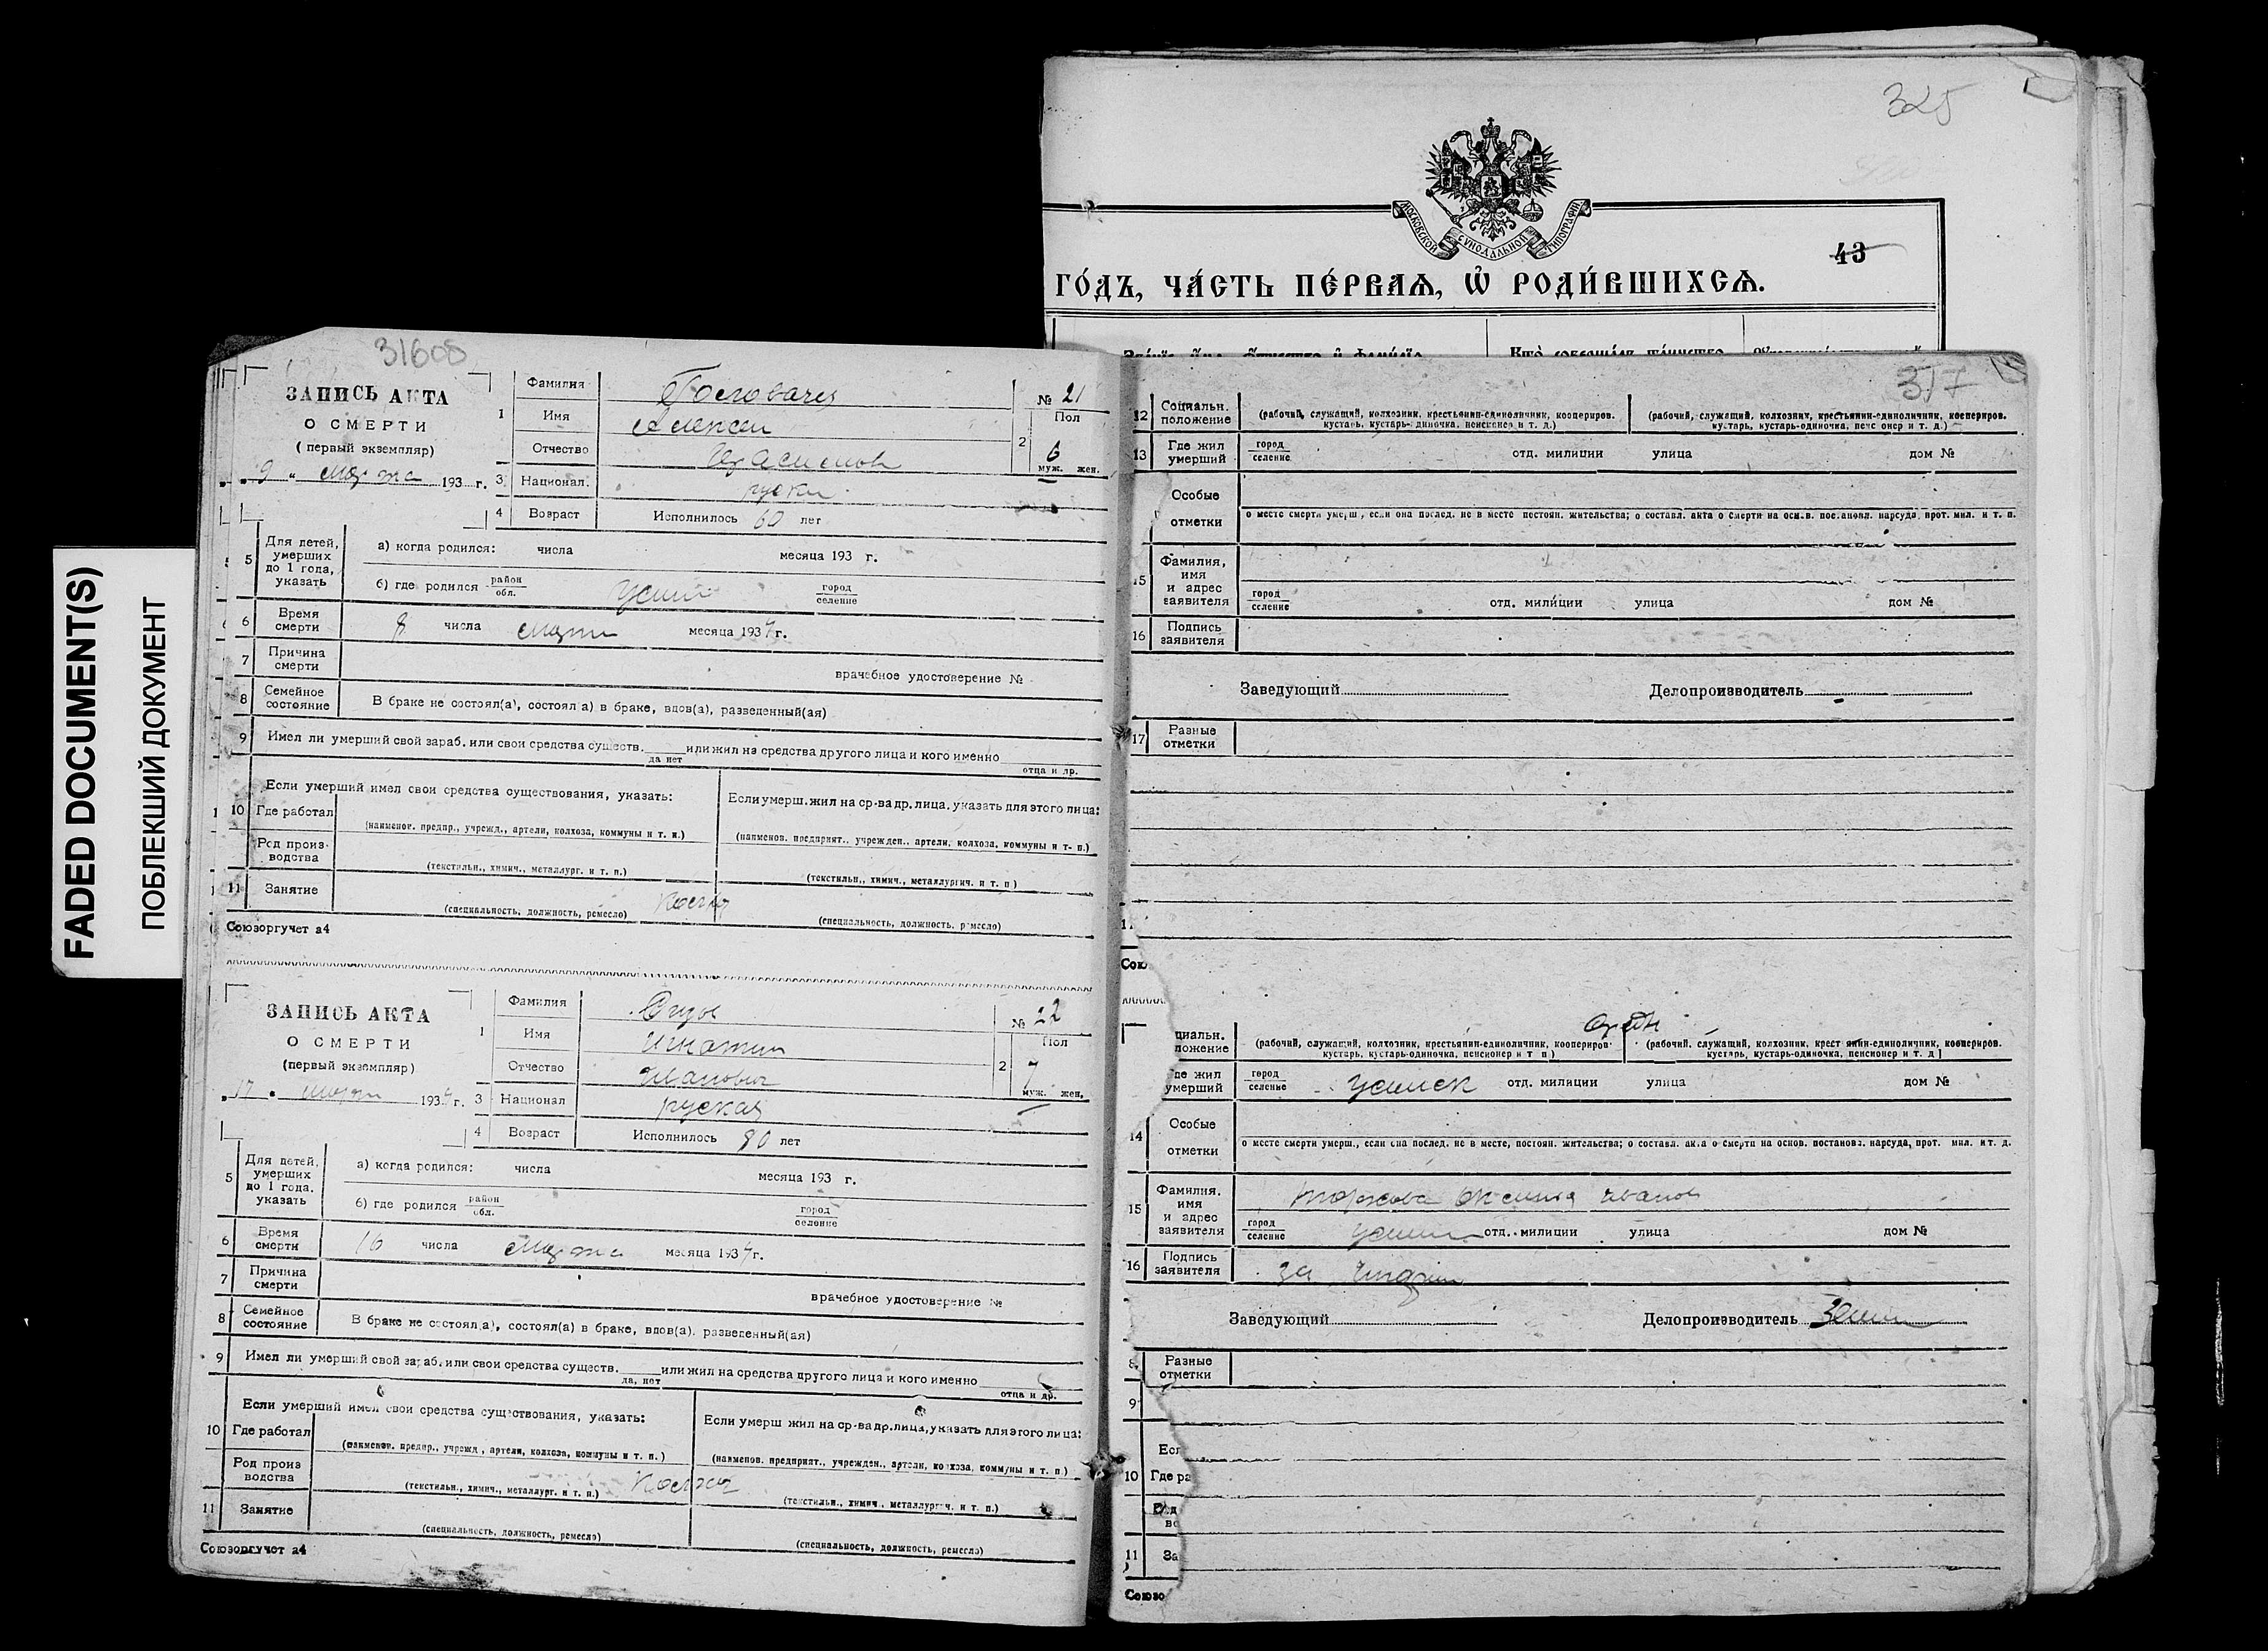 FADED DOCUMENT(S)
ПОБЛЕКШИЙ ДОКУМЕНТ
325
МОСКОВСКОЙ СУНОДАЛЬНОЙ ТИПОГРАФИИ
43
ГО́ДЪ, ЧА́СТЬ ПЕ́РВАЯ, Ѽ РОДИ́ВШИХСЯ.
31608
ЗАПИСЬ АКТА
О СМЕРТИ
(первый экземпляр)
9 " марта 193 г.
1 Фамилия
№ 21
Имя Алексей
Пол
Отчество
2 6
муж. жен.
3 Национал. руски
4 Возраст Исполнилось 60 лет
5 Для детей, умерших до 1 года, указать
а) когда родился: числа месяца 193 г.
б) где родился район обл. город селение
6 Время смерти 8 числа марта месяца 1934 г.
7 Причина смерти
врачебное удостоверение №
8 Семейное состояние В браке не состоял(а), состоял(а) в браке, вдов(а), разведенный(ая)
9 Имел ли умерший свой зараб. или свои средства существ. или жил на средства другого лица и кого именно
да нет отца и др.
Если умерший имел свои средства существования, указать:
Если умерш. жил на ср-ва др. лица, указать для этого лица:
10 Где работал
(наименов. предпр., учрежд., артели, колхоза, коммуны и т. п.)
(наименов. предприят., учрежден., артели, колхоза, коммуны и т. п.)
Род производства
(текстильн., химич., металлург. и т. п.)
(текстильн., химич., металлургич. и т. п.)
11 Занятие
(специальность, должность, ремесло)
(специальность, должность, ремесло)
Союзоргучет а4
ЗАПИСЬ АКТА
О СМЕРТИ
(первый экземпляр)
17 " марта 1934 г.
1 Фамилия
№ 22
Имя Игнатий
Пол
Отчество Иванович
2 7
муж. жен.
3 Национал руская
4 Возраст Исполнилось 80 лет
5 Для детей, умерших до 1 года, указать
а) когда родился: числа месяца 193 г.
б) где родился район обл. город селение
6 Время смерти 16 числа марта месяца 1934 г.
7 Причина смерти
врачебное удостоверение №
8 Семейное состояние В браке не состоял(а), состоял(а) в браке, вдов(а), разведенный(ая)
9 Имел ли умерший свой зараб. или свои средства существ. или жил на средства другого лица и кого именно
да, нет отца и др.
Если умерший имел свои средства существования, указать:
Если умерш жил на ср-ва др. лица, указать для этого лица:
10 Где работал
(наименов. предпр., учрежд., артели, колхоза, коммуны и т. п.)
(наименов. предприят., учрежден., артели, колхоза, коммуны и т. п.)
Род производства
(текстильн., химич., металлург. и т. п.)
(текстильн., химич., металлургич. и т. п.)
11 Занятие
(специальность, должность, ремесло)
(специальность, должность, ремесло)
Союзоргучет а4
317
12 Социальн. положение
(рабочий, служащий, колхозник, крестьянин-единоличник, коопериров. кустарь, кустарь-одиночка, пенсионер и т. д.)
(рабочий, служащий, колхозник, крестьянин-единоличник, коопериров. кустарь, кустарь-одиночка, пенсионер и т. д.)
13 Где жил умерший город селение отд. милиции улица дом №
Особые отметки
о месте смерти умерш., если она послед. не в месте постоян. жительства; о составл. акта о смерти на основ. постановл. нарсуда, прот. мил. и т. п.
15 Фамилия, имя и адрес заявителя
город селение отд. милиции улица дом №
16 Подпись заявителя
Заведующий Делопроизводитель
17 Разные отметки
11
Сою
циальн. ложение
(рабочий, служащий, колхозник, крестьянин-единоличник, коопериров. кустарь, кустарь-одиночка, пенсионер и т п)
(рабочий, служащий, колхозник, крестьянин-единоличник, коопериров. кустарь, кустарь-одиночка, пенсионер и т. д)
де жил умерший город селение отд. милиции улица дом №
14 Особые отметки
о месте смерти умерш., если она послед. не в месте, постоян. жительства; о составл. акта о смерти на основ. постановл. нарсуда, прот. мил. и т. д.
15 Фамилия, имя и адрес заявителя
город селение отд. милиции улица дом №
16 Подпись заявителя за
Заведующий Делопроизводитель
8 Разные отметки
9
Есл
10 Где ра
11 За
Союзо